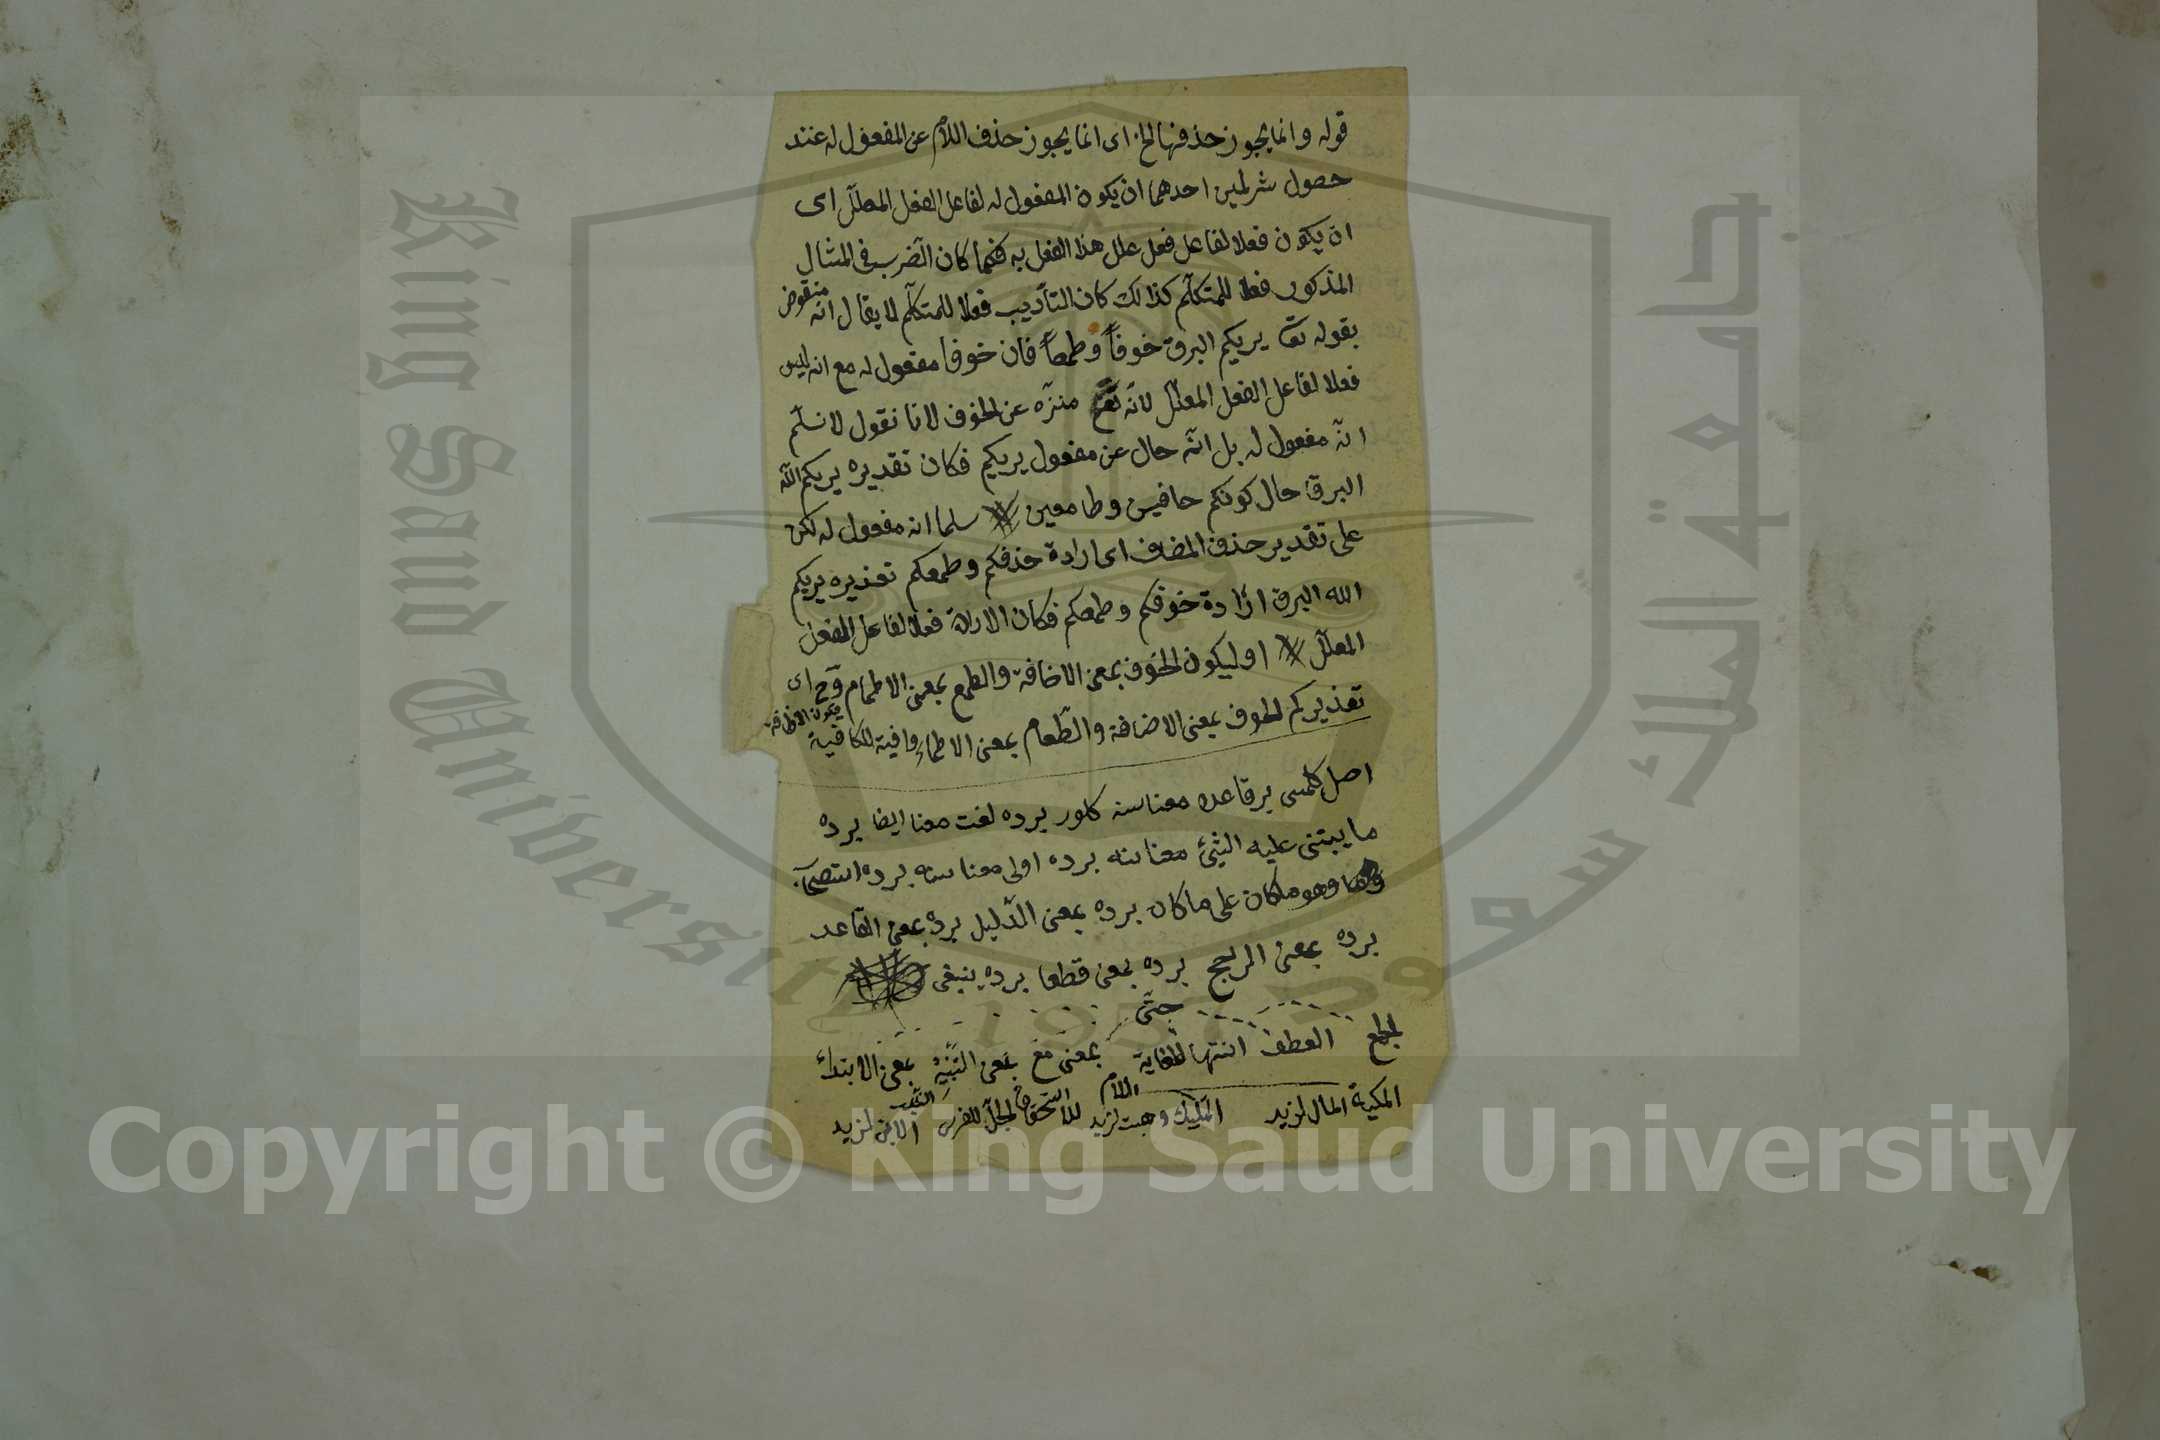 قوله وانما يجوز حذفها الخ اى انما يجوز حذف اللام عن المفعول له عند
حصول شرطين احدهما ان يكون المفعول له لفاعل الفعل المعلّل اى
ان يكون فعلا لفاعل فعل علل هذا الفعل به فكما كان الضرب فى المثال
المذكور فعلا للمتكلّم كذالك كان التأديب فعلا للمتكلّم لا يقال انه منقوض
بقوله تع يريكم البرق خوفاً وطمعاً فان خوفا مفعول له مع انه ليس
فعلا لفاعل الفعل المعلّل لانّه تع منزّه عن الخوف لانا نقول لا نسلّم
انّه مفعول له بل انّه حال عن مفعول يريكم فكان تقديره يريكم اللّه
البرق حال كونكم خافين وطامعين سلمنا انه مفعول له لكن
على تقدير حذف المضاف اى ارادة خوفكم وطمعكم تقديره يريكم
الله البرق ارادة خوفكم وطمعكم فكان الارادة فعلا لفاعل الفعل
المعلّل او ليكون الخوف بمعنى الاخافة والطمع بمعنى الاطماع اى
الخوف بمعنى الاضافة والطّعام بمعنى وافية للكافية
اصل كلمسى بر قاعده معناسنه كلور برده لغت معنا ايضا برده
ما يبتنى عليه الشئ معناسنه برده اولى معناسنه برده استصحاب
وهو ما كان على ما كان برده بمعنى الدّليل برده بمعنى القاعد
برده بمعنى الرجح برده بمعنى قطعا برده ينبغى
حتّى
الجمع العطف انتها الغاية بمعنى مع بمعنى بمعنى الابتداء
اللام
المكية المال لزيد التمليك وهبت لزيد للاستحقاق الجلّ للفرس النسب الابن لزيد
King Saud University
جامعة الملك سعود
1957
Copyright © King Saud University